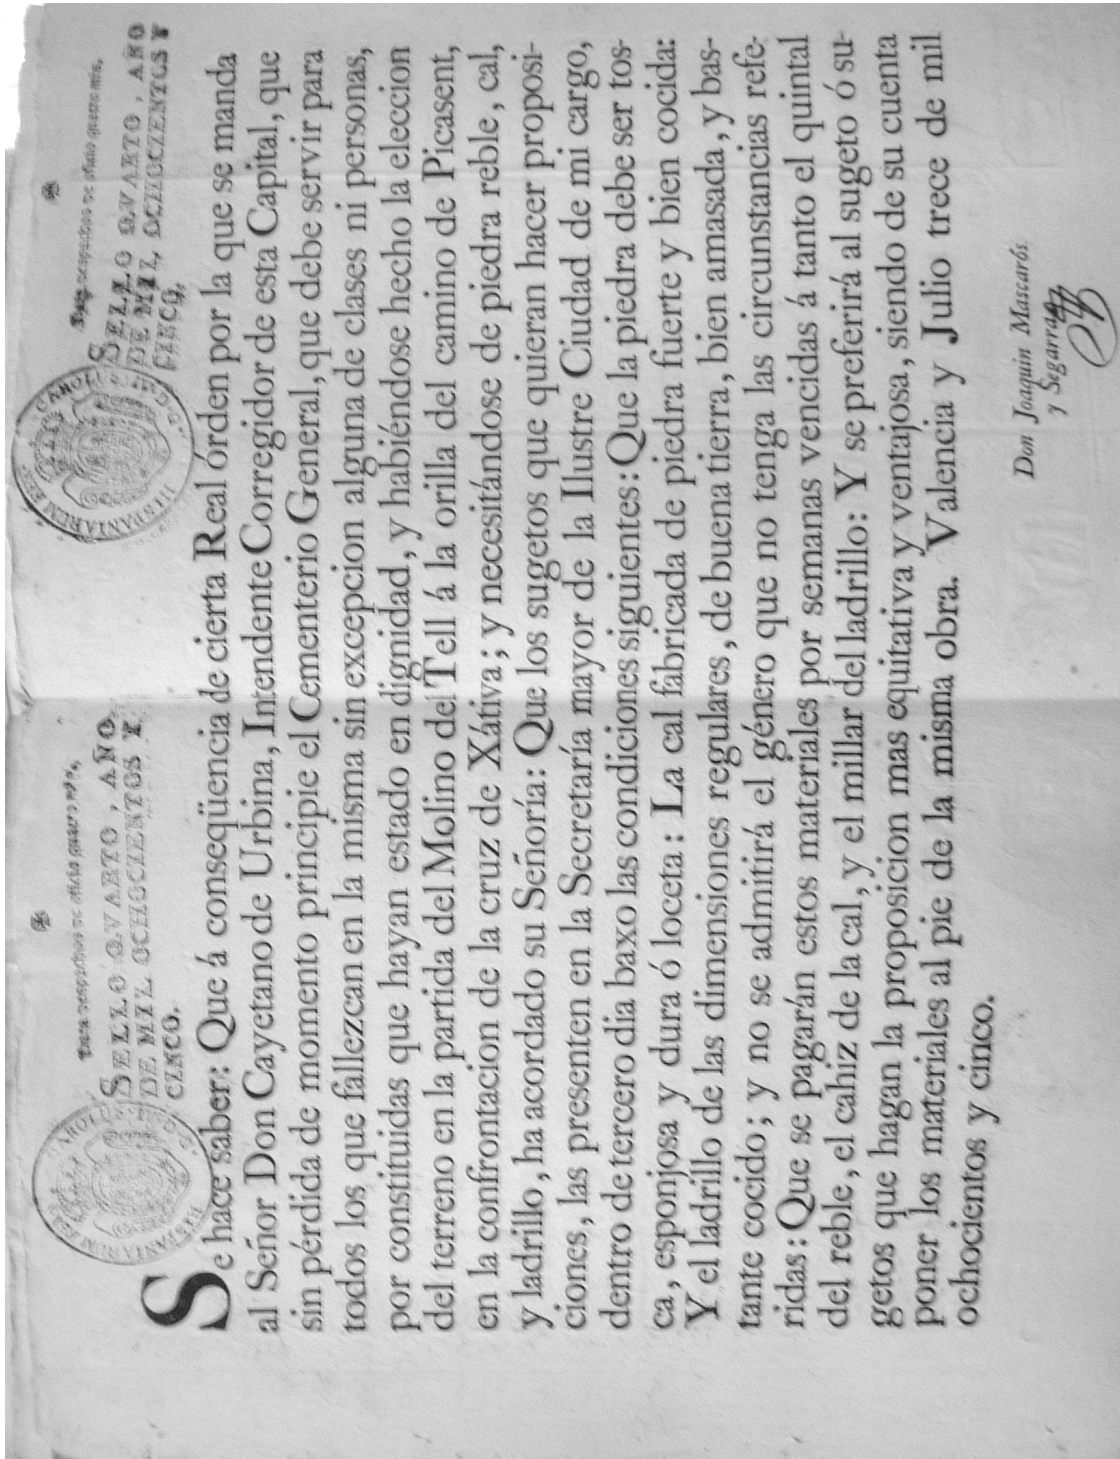 Para despachos de oficio quatro mrs.
SELLO QVARTO, AÑO
DE MIL OCHOCIENTOS Y
CINCO.
Para despachos de oficio quatro mrs.
SELLO QVARTO, AÑO
DE MIL OCHOCIENTOS Y
CINCO.
CAROLUS IV D. G. HISPANIARUM REX
CAROLUS IV D. G. HISPANIARUM REX
Se hace saber: Que á conseqüencia de cierta Real órden por la que se manda
al Señor Don Cayetano de Urbina, Intendente Corregidor de esta Capital, que
sin pérdida de momento principie el Cementerio General, que debe servir para
todos los que fallezcan en la misma sin excepcion alguna de clases ni personas,
por constituidas que hayan estado en dignidad, y habiéndose hecho la eleccion
del terreno en la partida del Molino del Tell á la orilla del camino de Picasent,
en la confrontacion de la cruz de Xátiva; y necesitándose de piedra reble, cal,
y ladrillo, ha acordado su Señoría: Que los sugetos que quieran hacer proposi-
ciones, las presenten en la Secretaría mayor de la Ilustre Ciudad de mi cargo,
dentro de tercero dia baxo las condiciones siguientes: Que la piedra debe ser tos-
ca, esponjosa y dura ó loceta: La cal fabricada de piedra fuerte y bien cocida:
Y el ladrillo de las dimensiones regulares, de buena tierra, bien amasada, y bas-
tante cocido; y no se admitirá el género que no tenga las circunstancias refe-
ridas: Que se pagarán estos materiales por semanas vencidas á tanto el quintal
del reble, el cahiz de la cal, y el millar del ladrillo: Y se preferirá al sugeto ó su-
getos que hagan la proposicion mas equitativa y ventajosa, siendo de su cuenta
poner los materiales al pie de la misma obra. Valencia y Julio trece de mil
ochocientos y cinco.
Don Joaquin Mascarós
y Segarra